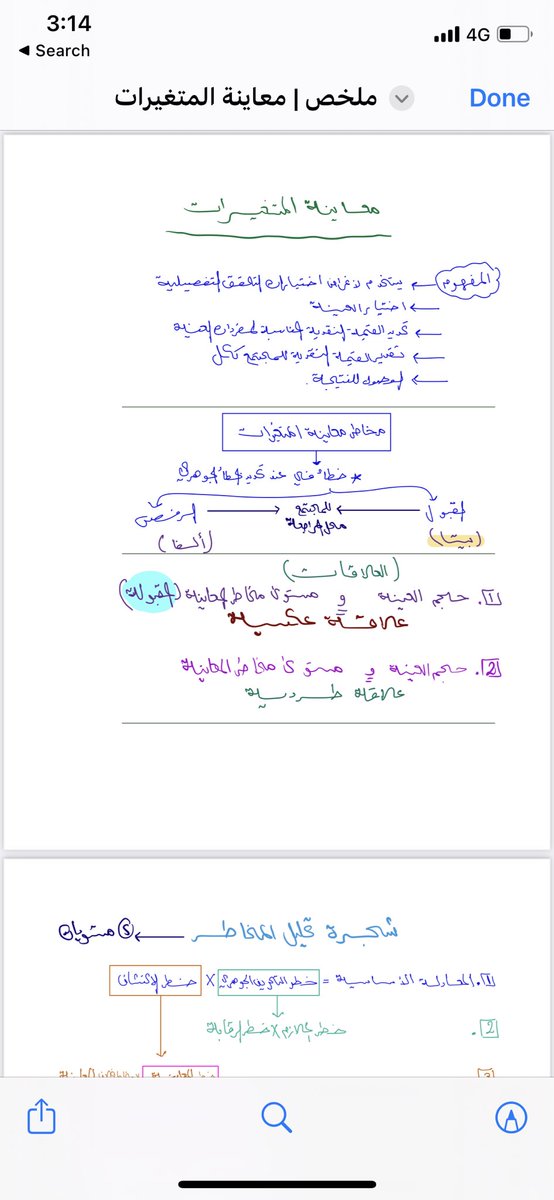 3:14
4G
◀ Search
ملخص | معاينة المتغيرات
Done
معاينة المتغيرات
المفهوم ← يستخدم لأغراض اختبارات التحقق التفصيلية
← اختيار العينة
← تحديد القيمة النقدية المناسبة لمفردات العينة
← تقدير القيمة النقدية للمجتمع ككل
← الوصول للنتيجة.
مخاطر معاينة المتغيرات
* خطأ في عند تحديد الخطأ الجوهري
القبول ← للمجتمع محل المراجعة → الرفض
(بيتا) (ألفا)
(العلاقات)
1. حجم العينة و مستوى مخاطر المعاينة (المقبولة)
علاقة عكسية
2. حجم العينة و مستوى مخاطر المعاينة
علاقة طردية
شجرة تحليل المخاطر ← 5 مستويات
1. المعادلة الأساسية = خطر التحريف الجوهري X خطر الاكتشاف
2. خطر الملازم X خطر الرقابة
3